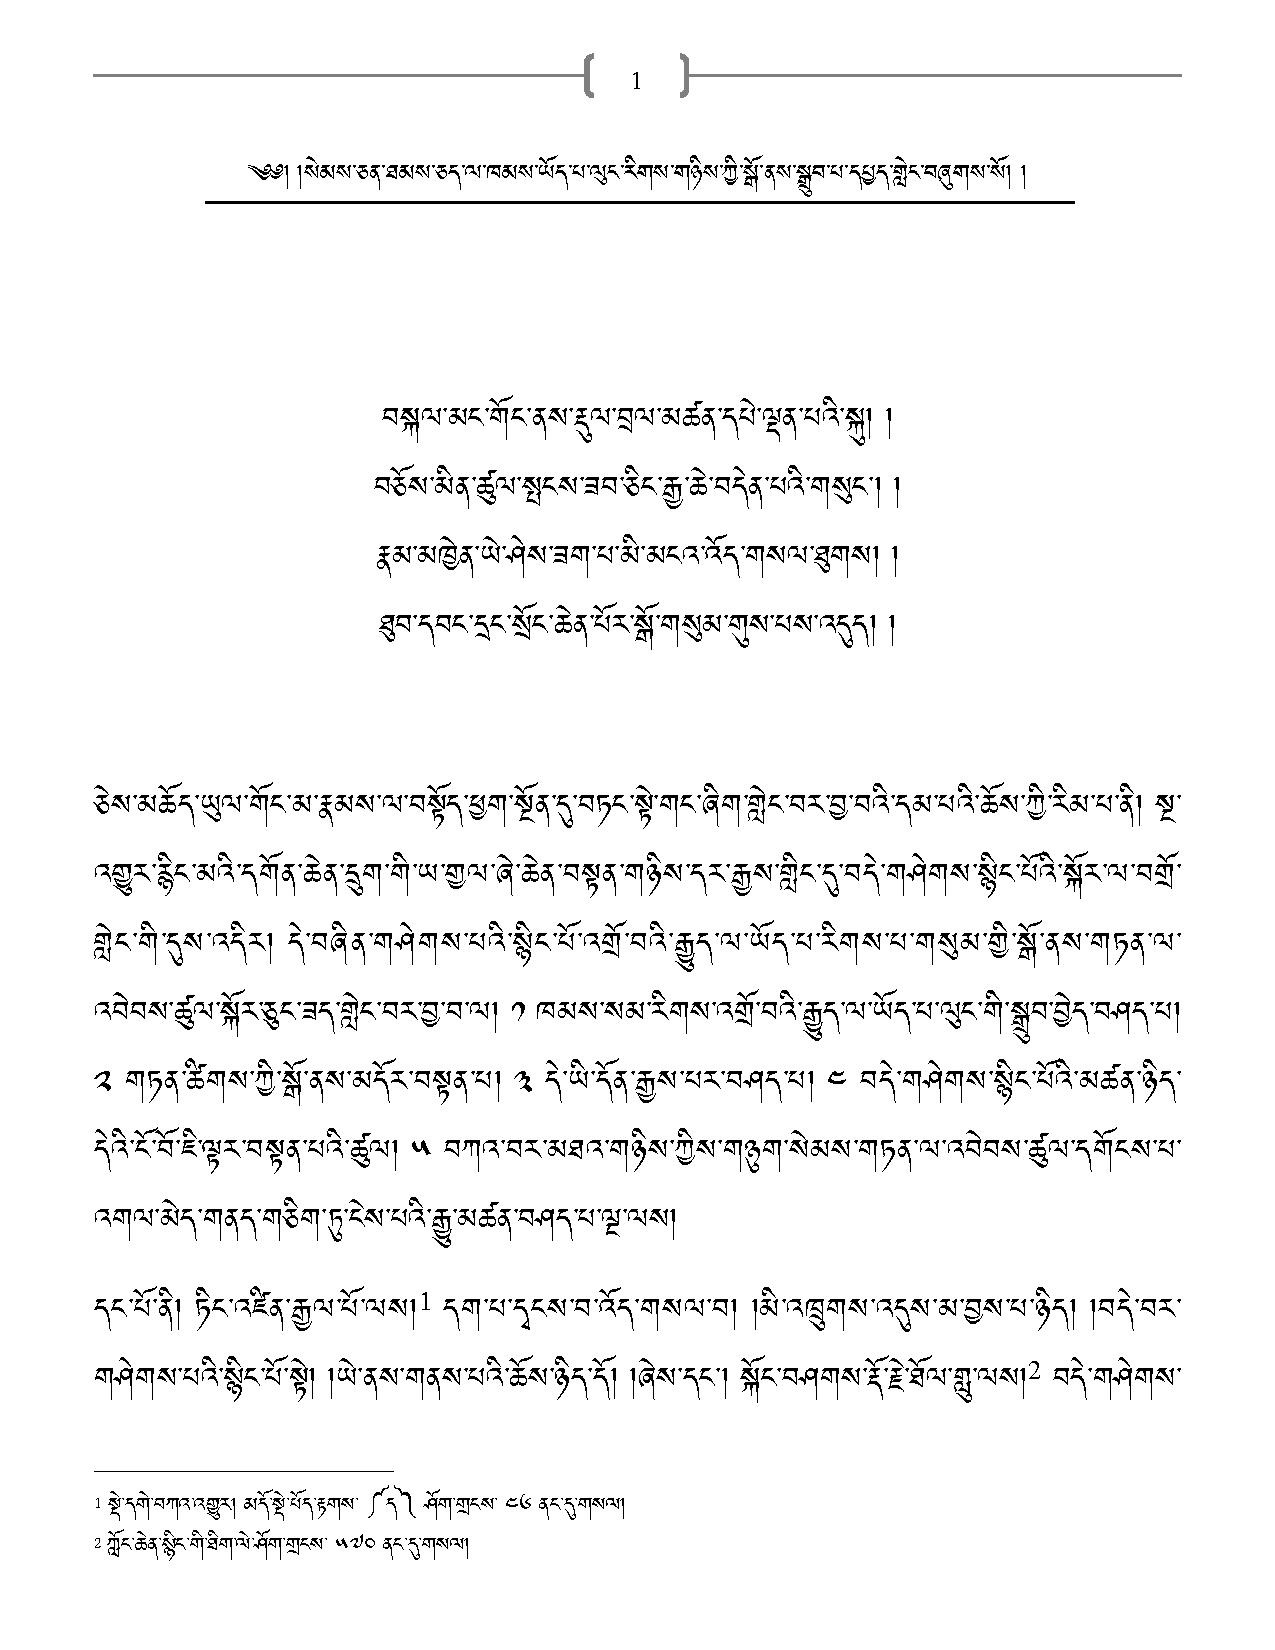 1
༄༅། །སེམས་ཅན་ཐམས་ཅད་ལ་ཁམས་ཡོད་པ་ལུང་རིགས་གཉིས་ཀྱི་སྒོ་ནས་སྒྲུབ་པ་དཔྱད་གླེང་བཞུགས་སོ། །
བསྐལ་མང་གོང་ནས་རྡུལ་བྲལ་མཚན་དཔེ་ལྡན་པའི་སྐུ། །
བཅོས་མིན་ཚུལ་སྤངས་ཟབ་ཅིང་རྒྱ་ཆེ་བདེན་པའི་གསུང་། །
རྣམ་མཁྱེན་ཡེ་ཤེས་ཟག་པ་མི་མངའ་འོད་གསལ་ཐུགས། །
ཐུབ་དབང་དྲང་སྲོང་ཆེན་པོར་སྒོ་གསུམ་གུས་པས་འདུད། །
ཅེས་མཆོད་ཡུལ་གོང་མ་རྣམས་ལ་བསྟོད་ཕྱག་སྔོན་དུ་བཏང་སྟེ་གང་ཞིག་གླེང་བར་བྱ་བའི་དམ་པའི་ཆོས་ཀྱི་རིམ་པ་ནི། སྔ་
འགྱུར་རྙིང་མའི་དགོན་ཆེན་དྲུག་གི་ཡ་གྱལ་ཞེ་ཆེན་བསྟན་གཉིས་དར་རྒྱས་གླིང་དུ་བདེ་གཤེགས་སྙིང་པོའི་སྐོར་ལ་བགྲོ་
གླེང་གི་དུས་འདིར། དེ་བཞིན་གཤེགས་པའི་སྙིང་པོ་འགྲོ་བའི་རྒྱུད་ལ་ཡོད་པ་རིགས་པ་གསུམ་གྱི་སྒོ་ནས་གཏན་ལ་
འབེབས་ཚུལ་སྐོར་ཅུང་ཟད་གླེང་བར་བྱ་བ་ལ། ༡ ཁམས་སམ་རིགས་འགྲོ་བའི་རྒྱུད་ལ་ཡོད་པ་ལུང་གི་སྒྲུབ་བྱེད་བཤད་པ།
༢ གཏན་ཚིགས་ཀྱི་སྒོ་ནས་མདོར་བསྟན་པ། ༣ དེ་ཡི་དོན་རྒྱས་པར་བཤད་པ། ༤ བདེ་གཤེགས་སྙིང་པོའི་མཚན་ཉིད་
དེའི་ངོ་བོ་ཇི་ལྟར་བསྟན་པའི་ཚུལ། ༥ བཀའ་བར་མཐའ་གཉིས་ཀྱིས་གཉུག་སེམས་གཏན་ལ་འབེབས་ཚུལ་དགོངས་པ་
འགལ་མེད་གནད་གཅིག་ཏུ་ངེས་པའི་རྒྱུ་མཚན་བཤད་པ་ལྔ་ལས།
དང་པོ་ནི། ཏིང་འཛིན་རྒྱལ་པོ་ལས།1 དག་པ་དྭངས་བ་འོད་གསལ་བ། །མི་འཁྲུགས་འདུས་མ་བྱས་པ་ཉིད། །བདེ་བར་
གཤེགས་པའི་སྙིང་པོ་སྟེ། །ཡེ་ནས་གནས་པའི་ཆོས་ཉིད་དོ། །ཞེས་དང་། སྐོང་བཤགས་རྡོ་རྗེ་ཐོལ་གླུ་ལས།2 བདེ་གཤེགས་
1 སྡེ་དགེ་བཀའ་འགྱུར། མདོ་སྡེ་པོད་རྟགས་ ༼ད༽ ཤོག་གྲངས་ ༤༦ ནང་དུ་གསལ།
2 ཀློང་ཆེན་སྙིང་གི་ཐིག་ལེ་ཤོག་གྲངས་ ༥༧༠ ནང་དུ་གསལ།